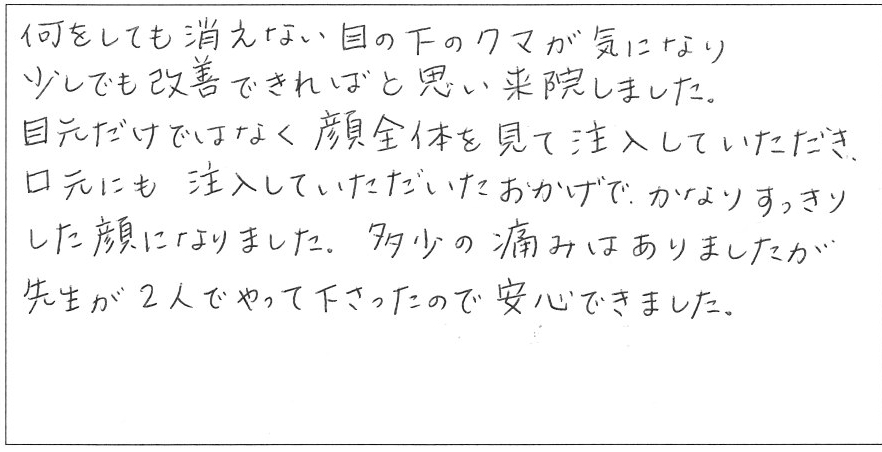 何をしても消えない目の下のクマが気になり
少しでも改善できればと思い来院しました。
目元だけではなく顔全体を見て注入していただき、
口元にも注入していただいたおかげで、かなりすっきり
した顔になりました。多少の痛みはありましたが
先生が2人でやって下さったので安心できました。